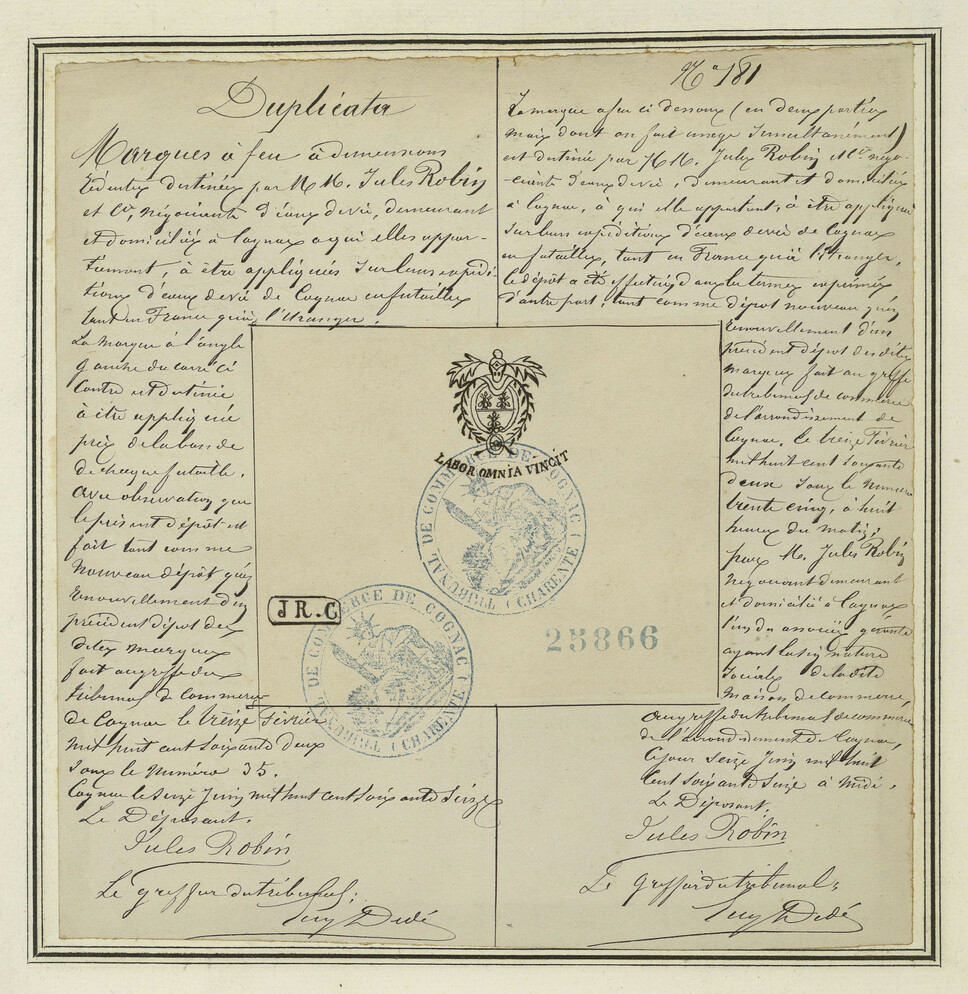 Duplicata
Marques à feu à dimensions
réduites destinées par MM. Jules Robin
et Cie, négociants d'eaux de vie, demeurant
et domiciliés à Cognac à qui elles appar-
tiennent, à être appliquées sur leurs expédi-
tions d'eaux de vie de Cognac en futailles
tant en France qu'à l'étranger.
La marque à l'angle
gauche du carré ci
contre est destinée
à être appliquée
près de la bonde
de chaque futaille.
avec observation que
le présent dépôt est
fait tant comme
nouveau dépôt qu'en
renouvellement d'un
précédent dépôt des
dites marques
fait au greffe du
tribunal de commerce
de Cognac le treize Février
mil huit cent soixante deux
sous le numéro 35.
Cognac le seize Juin mil huit cent soixante seize
Le Déposant.
Jules Robin
Le greffier du tribunal;
No 181
La marque à feu ci dessous (en deux parties
mais dont on fait usage simultanément)
est destinée par MM. Jules Robin & Cie négo-
ciants d'eaux de vie, demeurant et domiciliés
à Cognac, à qui elle appartient, à être appliquée
sur leurs expéditions d'eaux de vie de Cognac
en futailles, tant en France qu'à l'étranger,
le dépôt a été effectué dans les termes exprimés
d'autre part, tant comme dépôt nouveau qu'en
renouvellement d'un
précédent dépôt des dites
marques fait au greffe
du tribunal de commerce
de l'arrondissement de
Cognac, le treize Février
mil huit cent soixante
deux sous le numéro
trente cinq, à huit
heures du matin;
par M. Jules Robin
négociant demeurant
et domicilié à Cognac
l'un des associés gérants
ayant la signature
sociale de la dite
maison de commerce
au greffe du tribunal de commerce
de l'arrondissement de Cognac,
ce jour seize Juin mil huit
cent soixante seize à midi.
Le Déposant.
Jules Robin
Le greffier du tribunal;
LABOR OMNIA VINCIT
J R. C
TRIBUNAL DE COMMERCE DE COGNAC (CHARENTE)
TRIBUNAL DE COMMERCE DE COGNAC (CHARENTE)
25866